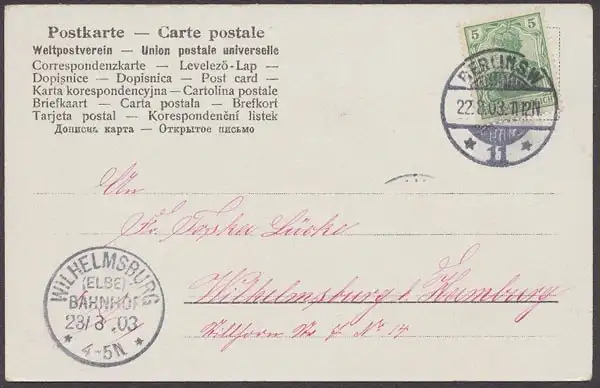 Postkarte — Carte postale
Weltpostverein — Union postale universelle
Correspondenzkarte — Levelező-Lap —
Dopisnice — Dopisnica — Post card —
Karta korespondencyjna — Cartolina postale
Briefkaart — Carta postala — Brefkort
Tarjeta postal — Korespondenční listek
Дописна карта — Открытое письмо
5 5
BERLIN SW
22.8.03. 11-12N.
* 11 *
An
Lücke
Wilhelmsburg b. Hamburg
No 14
WILHELMSBURG
(ELBE)
BAHNHOF
23/8.03
* 4-5N *